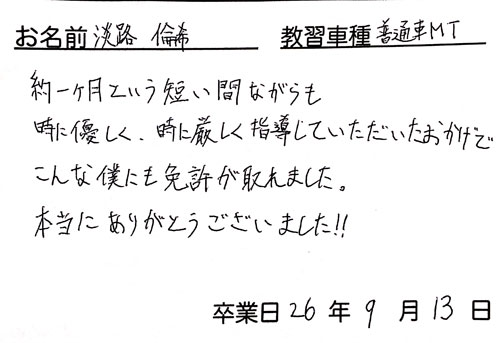 お名前 淡路 倫希 教習車種 普通車MT
約一ヶ月という短い間ながらも
時に優しく、時に厳しく指導していただいたおかげで
こんな僕にも免許が取れました。
本当にありがとうございました!!
卒業日 26 年 9 月 13 日